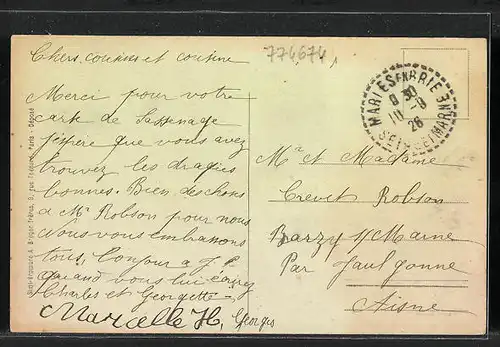 Chers cousins et cousine
Merci pour votre
carte de Sassenage
j'espère que vous avez
trouvez les dragées
bonnes. Bien des choses
à Mr Robson pour nous
Nous vous embrassons
tous. Bonjour a
quand vous lui écrirez
Charles et Georgette
Marcelle H, Georges
774674
MARLES EN BRIE
8 30
10 - 8
26
SEINE ET MARNE
Mr et Madame
Crevet Robson
Barzy s/ Marne
Par Jaulgonne
Aisne